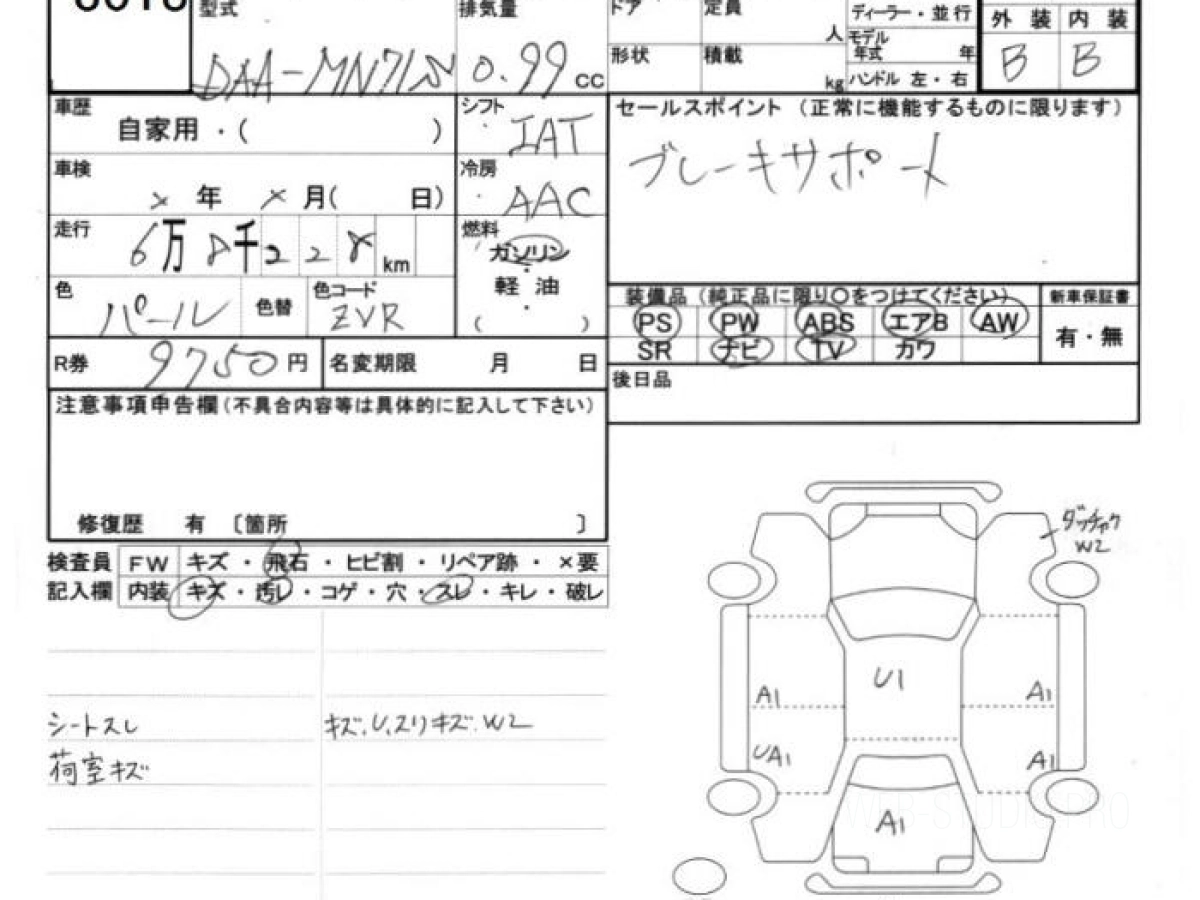 型式 排気量 ドア 定員 人 ディーラー・並行 外 装 内 装
DAA-MN71S 0.99 cc 形状 積載 kg モデル年式 年 ハンドル 左・右 B B
車歴 自家用・( ) シフト IAT セールスポイント (正常に機能するものに限ります)
ブレーキサポート
車検 × 年 × 月( 日) 冷房 AAC
走行 6万8千22 km 燃料 ガソリン
軽 油
( )
色 パール 色替 色コード ZVR
装備品 (純正品に限り○をつけてください) 新車保証書
PS PW ABS エアB AW 有・無
SR ナビ TV カワ
R券 9750円 名変期限 月 日 後日品
注意事項申告欄(不具合内容等は具体的に記入して下さい)
修復歴 有 〔箇所 〕
検査員 FW キズ・飛石・ヒビ割・リペア跡・×要
記入欄 内装 キズ・汚レ・コゲ・穴・スレ・キレ・破レ
シートスレ キズ,U,スリキズ.W2
荷室キズ
W2
U1
A1 A1
UA1 A1
A1
WEB-STUDIO PRO